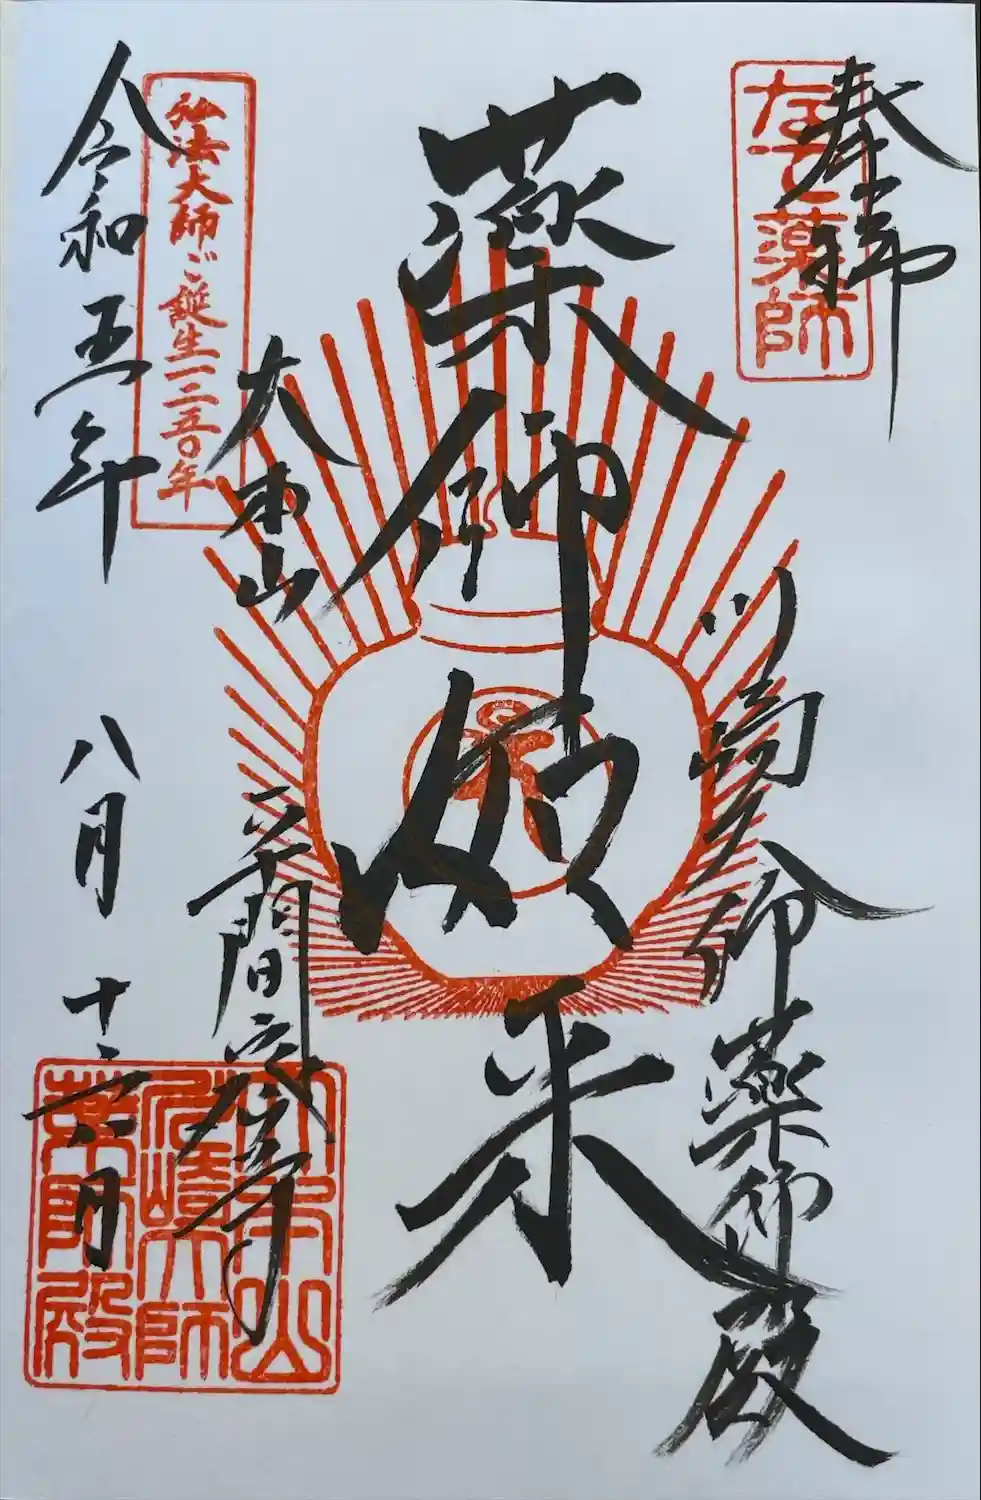 奉拝
なで薬師
川崎大師薬師殿
薬師如来
大本山
平間寺
弘法大師ご誕生一二五〇年
令和五年
八月十六日
大本山
川崎大師
薬師殿